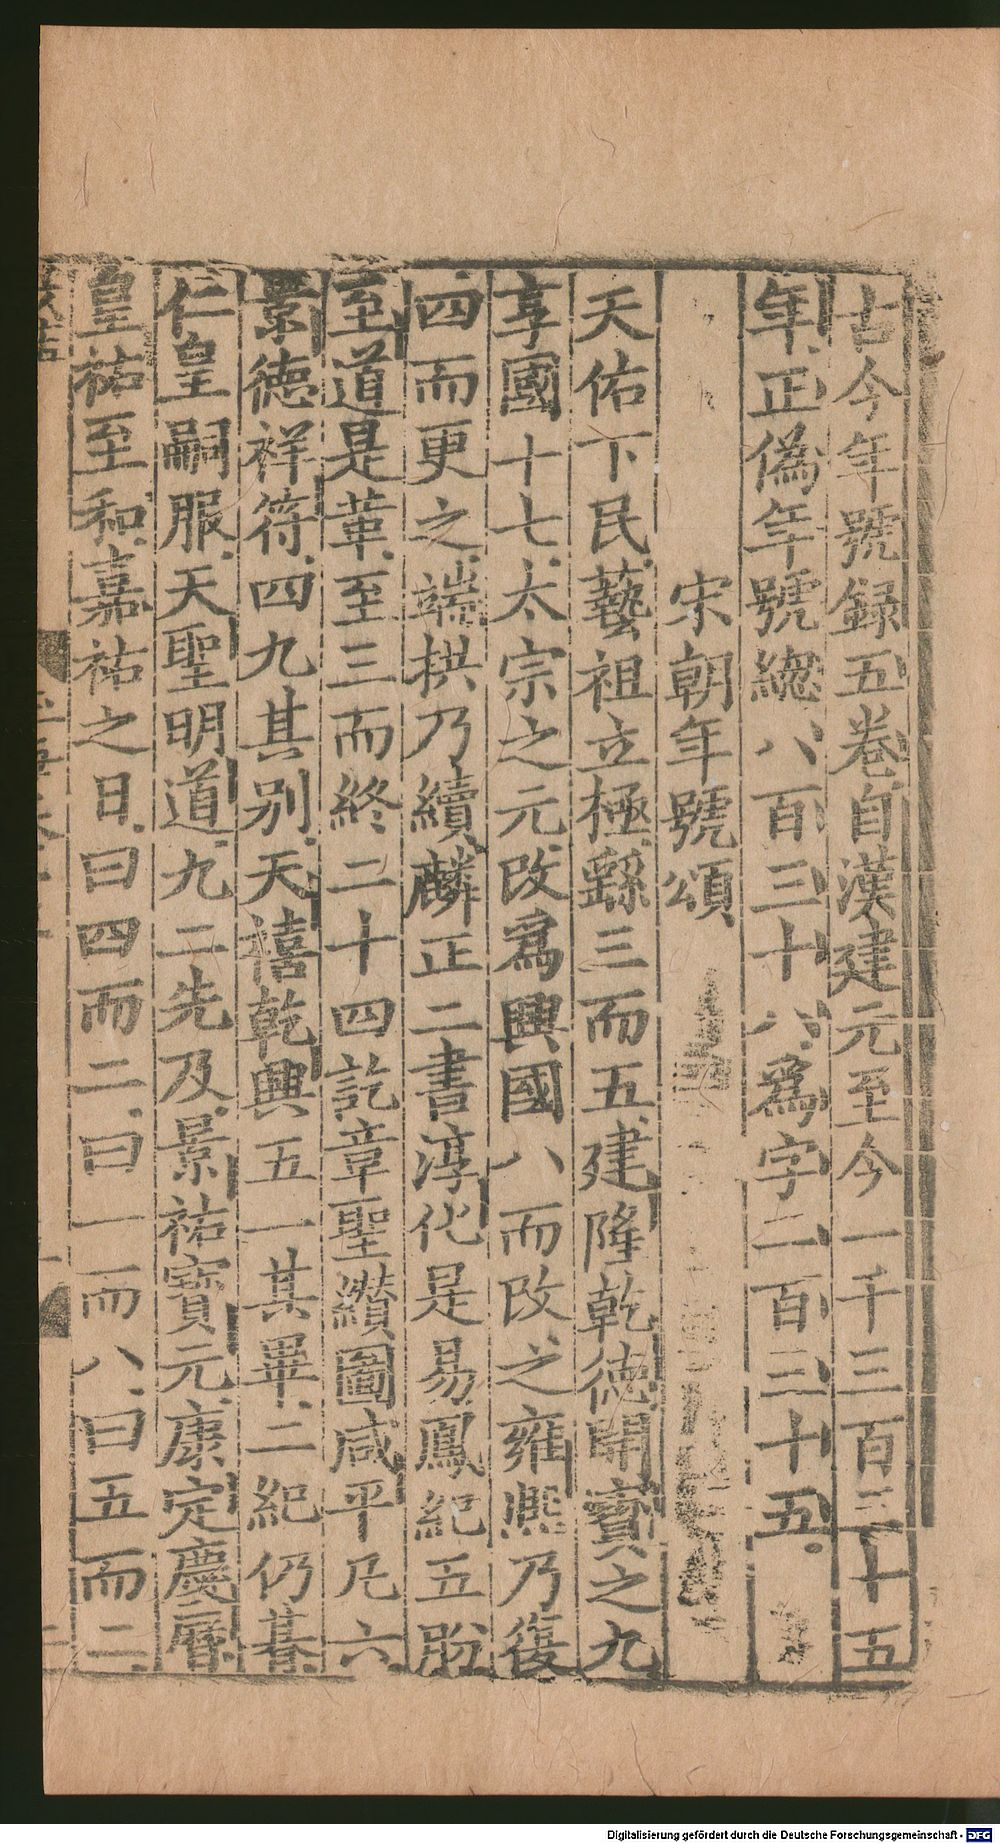 古今年號録五卷自漢建元至今一千三百三十五
年正偽年號緫八百三十八爲字二百三十五
宋朝年號頌
天佑下民藝祖立極繇三而五建隆乾德開寶之九
享國十七太宗之元改爲興國八而改之雍熈乃復
四而更之端拱乃續麟正二書淳化是易鳳紀五肦
至道是革至三而終二十四訖章聖纘圖咸平凡六
景德祥符四九其别天禧乾興五一其畢二紀仍朞
仁皇嗣服天聖明道九二先及景祐寳元康定慶曆
皇祐至和嘉祐之日曰四而二曰一而八曰五而二
Digitalisierung gefördert durch die Deutsche Forschungsgemeinschaft - DFG